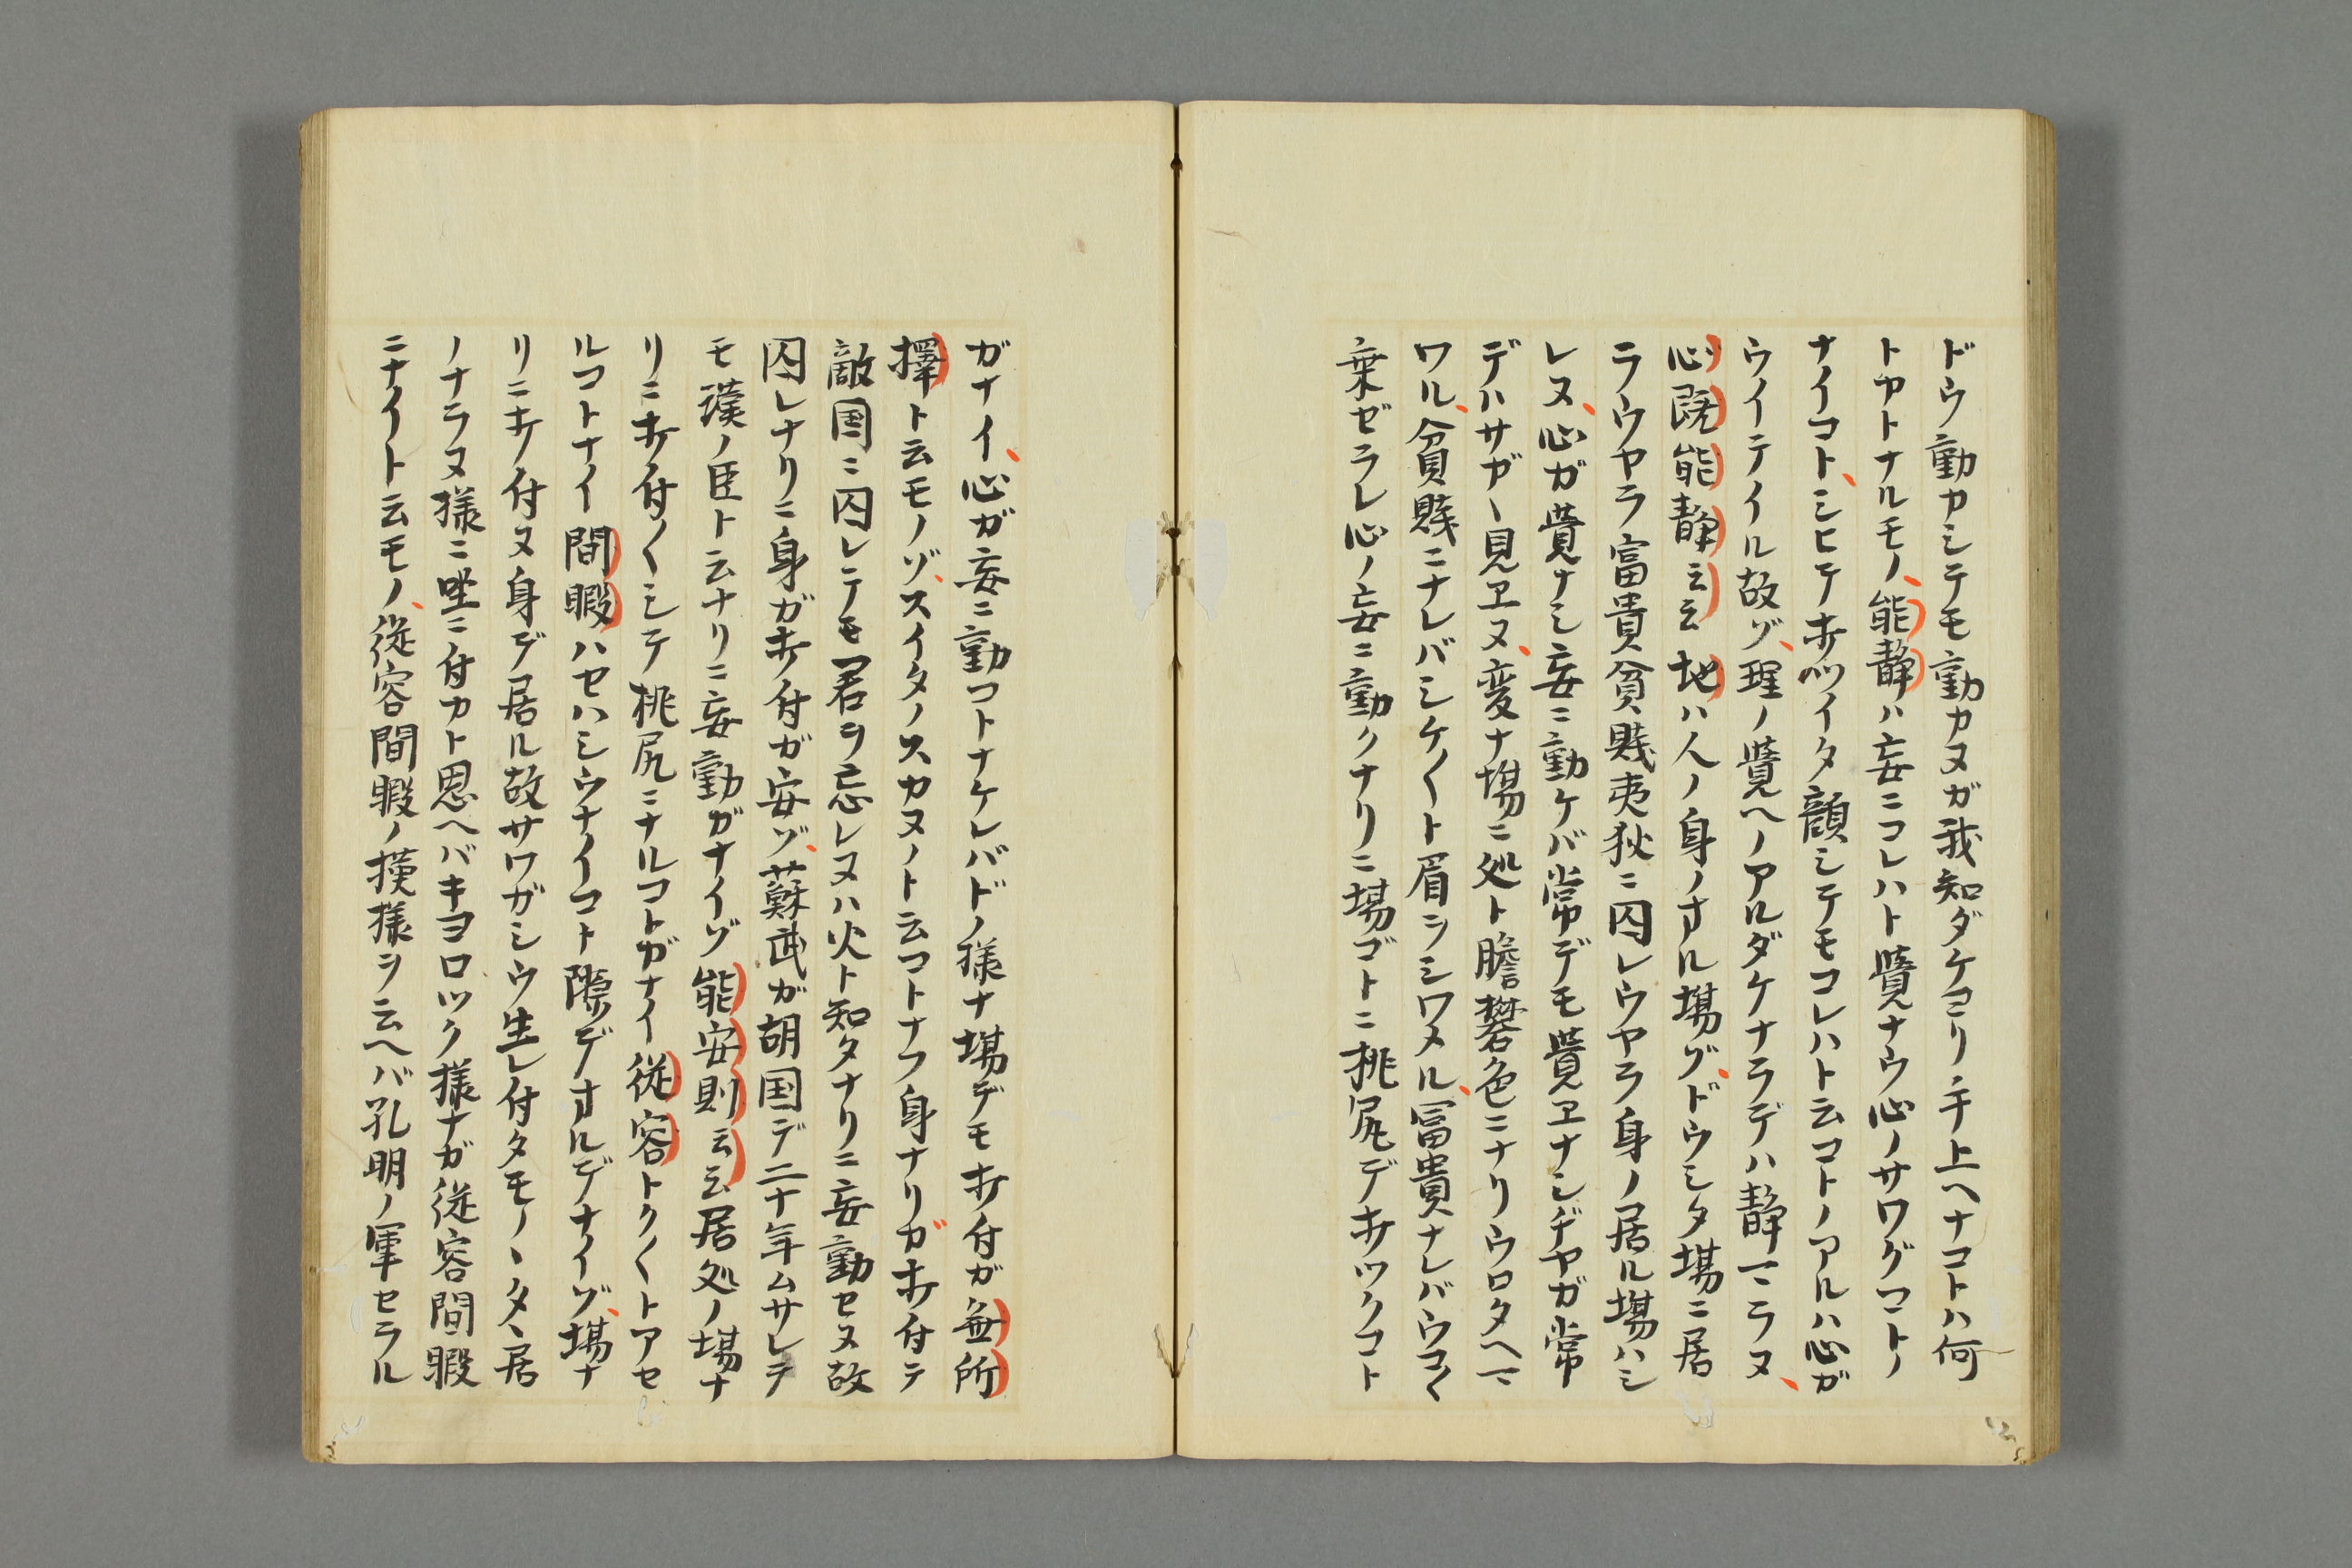 ドウ動カシテモ動カヌガ我知ダケヨリ手上ヘナコトハ何
トヤトナルモノ、能静ハ妄ニコレハト覺ナウ心ノサワグコトノ
ナイコト、シヒテオツイタ顔シテモコレハト云コトノアルハ心ガ
ウイテイル故ゾ、理ノ覺ヘノアルダケナラデハ静ニラヌ、
心既能静云云地ハ人ノ身ノオル場ゾ、ドウシタ場ニ居
ラウヤラ富貴貧賎夷狄ニ囚レウヤラ身ノ居ル場ハシ
レヌ、心ガ覺ナシ妄ニ動ケバ常デモ覺ヱナシヂヤガ常
デハサガヽ見ヱヌ、変ナ場ニ処ト膽礬色ニナリウロタヘ
ワル、貧賎ニナレバシケ〱ト眉ヲシワメル、冨貴ナレバウコ〱
棄ゼラレ心ノ妄ニ動クナリニ場ゴトニ桃尻デオツクコト
ガナイ、心ガ妄ニ動コトナケレバドノ様ナ場デモオノ付ガ無所
擇ト云モノゾ、スイタノスカヌノト云コトナフ身ナリガオノ付テ
敵国ニ囚レテモ君ヲ忘レヌハ火ト知タナリニ妄動セヌ故
囚レナリニ身ガオノ付ガ安ゾ、蘇武ガ胡国デ二十年ムサレテ
モ漢ノ臣ト云ナリニ妄動ガナイゾ能安則云云居処ノ場ナ
リニオノ付〱シテ桃尻ニナルコトガナイ従容トク〱トアセ
ルコトナイ間暇ハセハシウナイコト隙デオルデナイゾ、場ナ
リニオノ付ヌ身デ居ル故サワガシウ生レ付タモノヽタヽ居
ノナラヌ様ニ唑ニ付カト思ヘバキヨロツク様ナガ従容間暇
ニナイト云モノ、従容間暇ノ摸様ヲ云ヘバ孔明ノ軍セラル